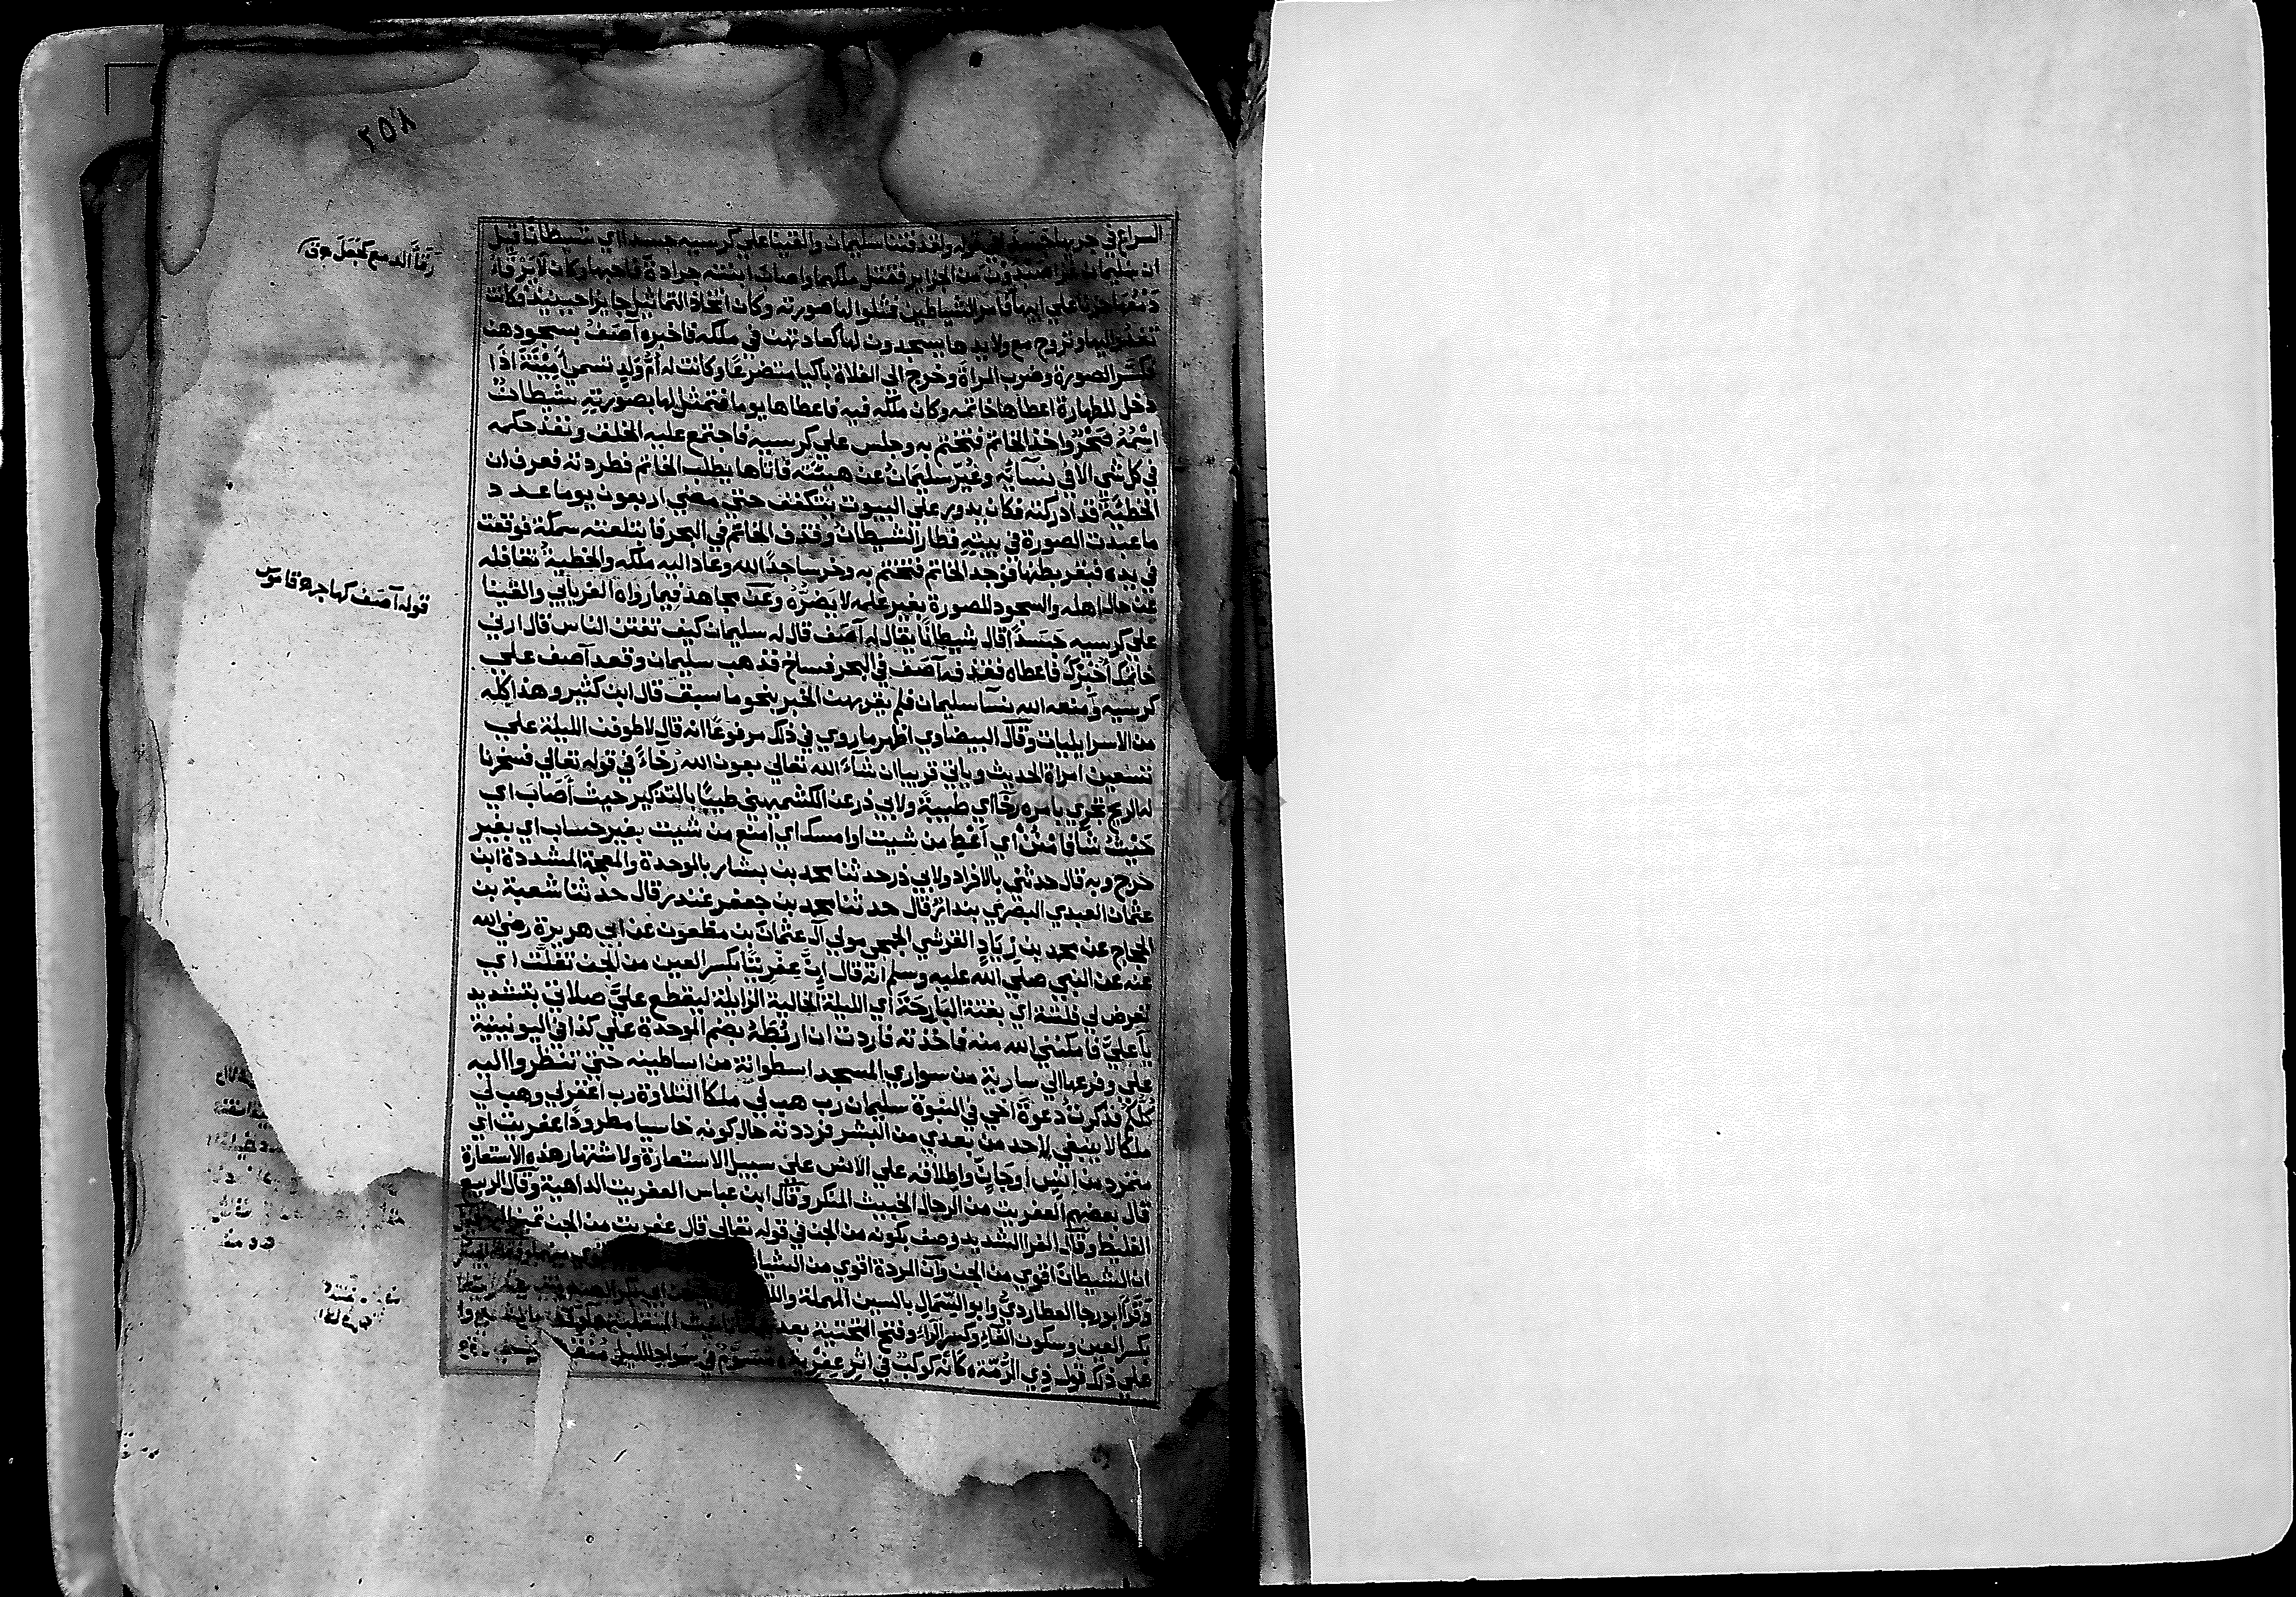 ٢٥٨
السراع في جريها جسدا في قوله ولقد فتنا سليمان والقينا علي كرسيه جسدا اي شيطانا قيل
ان سليمان غزا صيدون من الجزاير فقتل ملكها واصاب ابنته جرادة فاحبها وكان لا يرقأ
دمعها حزنا علي ابيها فامر الشياطين فمثلوا لها صورته وكان اتخاذ التماثيل جايزا حينيذ وكانت
تغدوا اليها وتروح مع ولايدها يسجدون لها كعادتهن في ملكه فاخبره آصف بسجودهن
فكسر الصورة وضرب المراة وخرج الي الفلاة باكيا متضرعا وكانت له ام ولد تسمي امينة اذا
دخل للطهارة اعطاها خاتمه وكان ملكه فيه فاعطاها يوما فتمثل لها بصورته شيطان
اسمه صخر واخذ الخاتم فتختم به وجلس علي كرسيه فاجتمع عليه الخلق ونفذ حكمه
في كل شي الا في نسآيه وغير سليمان عن هيئته فاتاها يطلب الخاتم فطردته فعرف ان
الخطيئة قد ادركته فكان يدور علي البيوت يتكفف حتي مضي اربعون يوما عدد
ما عبدت الصورة في بيته فطار الشيطان وقذف الخاتم في البحر فابتلعته سمكة فوقعت
في يده فبقر بطنها فوجد الخاتم فتختم به وخر ساجدا لله وعاد اليه ملكه والخطية تغافله
عن حال اهله والسجود للصورة بغير علمه لا يضره وعن مجاهد فيما رواه الفريابي والقينا
علي كرسيه جسدا قال شيطانا يقال له آصف قال له سليمان كيف تفتن الناس قال ارني
خاتمك اخبرك فاعطاه فقذفه آصف في البحر فساخ فذهب سليمان وقعد آصف علي
كرسيه ومنعه الله نسآ سليمان فلم يقربهن الخبر بنحو ما سبق قال ابن كثير وهذا كله
من الاسرايليات وقال البيضاوي اظهر ما روي في ذلك مرفوعا انه قال لاطوفن الليلة علي
تسعين امراة الحديث وياتي قريبا ان شآء الله تعالي بعون الله رخاء في قوله تعالي فسخرنا
له الريح تجري بامره رخآ اي طيبة ولابي ذر عن الكشميهني طيبا بالتذكير حيث أصاب اي
حيث شآ فامنن اي أعط من شيت او امسك اي امنع من شيت بغير حساب اي بغير
حرج وبه قال حدثني بالافراد ولابي ذر حدثنا محمد بن بشار بالموحدة والمعجمة المشددة ابن
عثمان العبدي البصري بندار قال حدثنا محمد بن جعفر غندر قال حدثنا شعبة بن
الحجاج عن محمد بن زياد القرشي الجمحي مولي آل عثمان بن مظعون عن ابي هريرة رضي الله
عنه عن النبي صلي الله عليه وسلم انه قال إن عفريتا بكسر العين من الجن تفلت اي
تعرض لي فلتة اي بغتة البارحة اي الليلة الخالية الزايلة ليقطع علي صلاتي بتشديد
يآ علي فامكنني الله منه فاخذته فاردت ان اربطه بضم الموحدة علي كذا في اليونينية
علي وفرعها الي سارية من سواري المسجد اسطوانة من اساطينه حتي تنظروا اليه
كلكم فذكرت دعوة اخي في النبوة سليمان رب هب لي ملكا التلاوة رب اغفر لي وهب لي
ملكا لا ينبغي لاحد من بعدي من البشر فرددته حال كونه خاسيا مطرودا عفريت اي
متمرد من انس او جان واطلاقه علي الانس علي سبيل الاستعارة ولاشتهار هذه الاستعارة
قال بعضهم العفريت من الرجال الخبيث المنكر وقال ابن عباس العفريت الداهية وقال الربيع
الغليظ وقال الفرا الشديد وصف بكونه من الجن في قوله تعالي قال عفريت من الجن تمييزا له
ان الشيطان اقوي من الجن وان المردة اقوي من الشيا
وقرأ ابو رجا العطاردي وابو السمال بالسين المهملة والل
بكسر العين وسكون الفاء وكسر الراء وفتح التحتية بعد
علي ذلك قول ذي الرمة كأنه كوكب في اثر عفرية مسوم في سواد الليل منقضب
رقأ الدمع كجعل جف ق
قوله آصف كهاجر قاموس